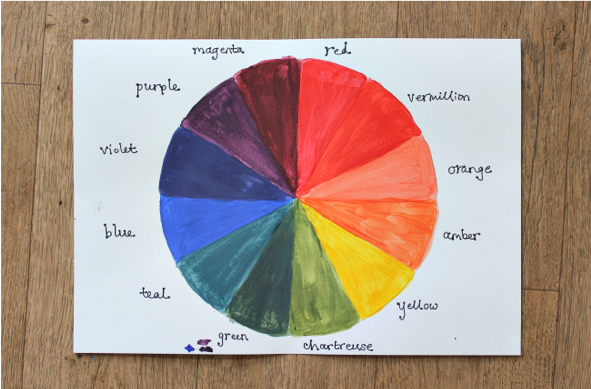 magenta
red
purple
vermillion
violet
orange
blue
amber
teal
yellow
green
chartreuse